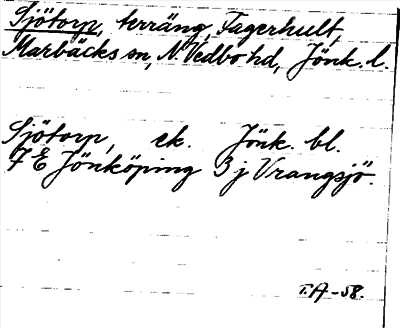 Sjötorp, terräng, Fagerhult,
Marbäcks sn, N. Vedbo hd, Jönk. l.
Sjötorp, ek. Jönk. bl.
7 E Jönköping 3 j Vrangsjö.
T.A-58.